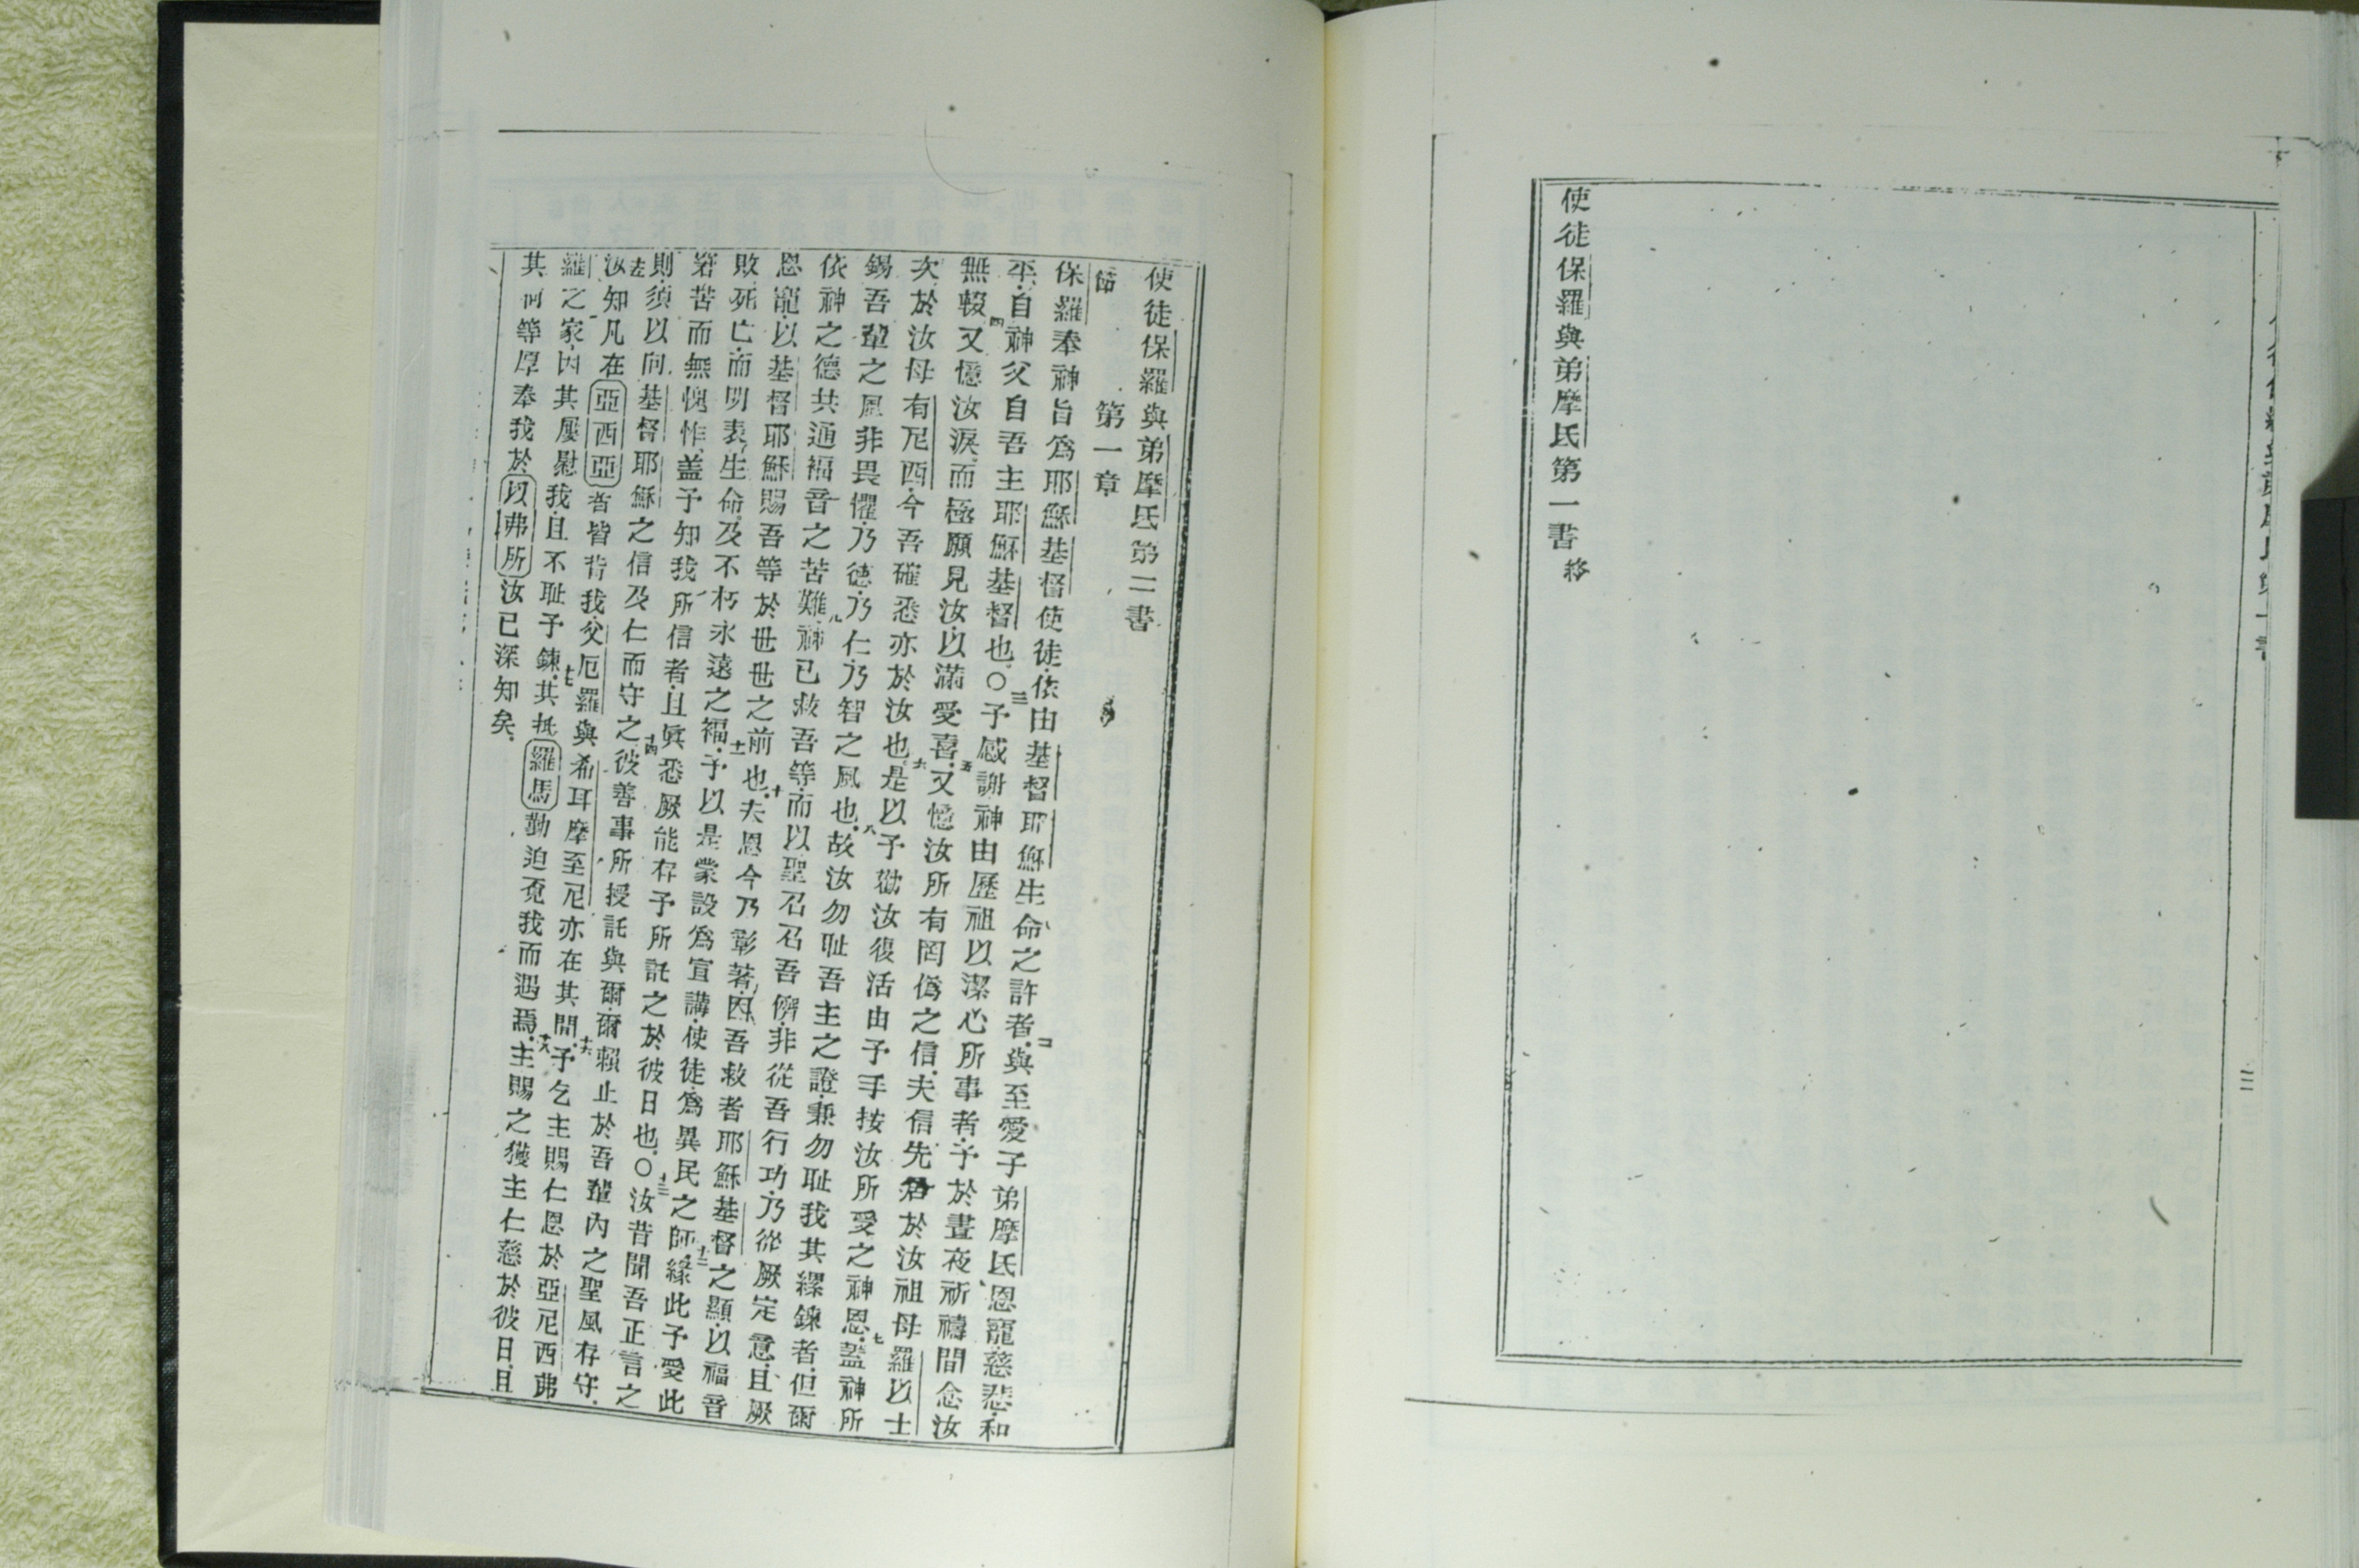 使徒保羅與弟摩氏第一書終
使徒保羅與弟摩氏第二書
第一章
節
保羅奉神旨爲耶穌基督使徒依由基督耶穌生命之許者二與至愛子弟摩氏恩寵慈悲和
平自神父自吾主耶穌基督也〇三予感謝神由歷祖以潔心所事者予於晝夜祈禱間念汝
無輟四又憶汝淚而極願見汝以滿愛喜五又憶汝所有罔僞之信夫信先居於汝祖母羅以士
次於汝母有尼西今吾確悉亦於汝也六是以予勸汝復活由予手按汝所受之神恩七蓋神所
錫吾輩之風非畏懼乃德乃仁乃智之風也八故汝勿耻吾主之證兼勿耻我其縲鍊者但爾
依神之德共通福音之苦難九神已救吾等而以聖召召吾儕非從吾行功乃從厥定意且厥
恩寵以基督耶穌賜吾等於世世之前也十夫恩今乃彰著因吾救者耶穌基督之顯以福音
敗死亡而明表生命及不朽永遠之福十一予以是蒙設爲宣講使徒爲異民之師十二緣此予愛此
窘苦而無愧怍蓋予知我所信者且眞悉厥能存予所託之於彼日也〇十三汝昔聞吾正言之
則須以向基督耶穌之信及仁而守之十四彼善事所授託與爾爾賴止於吾輩內之聖風存守
十五汝知凡在亞西亞者皆背我父厄羅與希耳摩至尼亦在其間十六予乞主賜仁恩於亞尼西弗
羅之家因其屢慰我且不耻予鍊十七其抵羅馬勤迫覔我而遇焉十八主賜之獲主仁慈於彼日且
其何等厚奉我於以弗所汝已深知矣